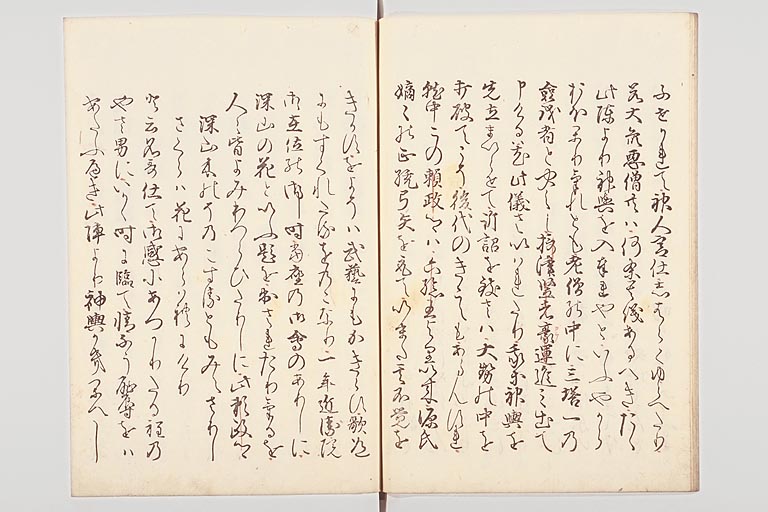 ふせかれて神人宮仕しはらくゆらへたり
若大衆悪僧共は何条其儀あるへきたゝ
此陣より神輿を入奉れやといふやから
おほかりけれとも老僧の中に三塔一の
僉議者と聞えし摂津竪者豪運進み出て
申けるは此儀さいはれたり我等神輿を
先立まいらせて訴詔を致さは大勢の中を
打破てこそ後代のきこえもあらんすれ
就中この頼政卿は六孫王より以来源氏
嫡々の正統弓矢を取ていまた其不覚を
きかすをよそは武藝にもかきらす歌道
にもすくれたるをのこなり一年近衛院
御在位の御時当座の御会のありしに
深山の花といふ題を出されたりけるを
人々皆よみわつらひたりしに此頼政卿
深山木のその こすゑともみえさりし
さくらは花にあらはれにけり
と云名哥仕て御感にあつかりたる程の
やさ男にいかゝ時に臨て情なう恥辱をは
あたふへき此陣より神輿かき返へし